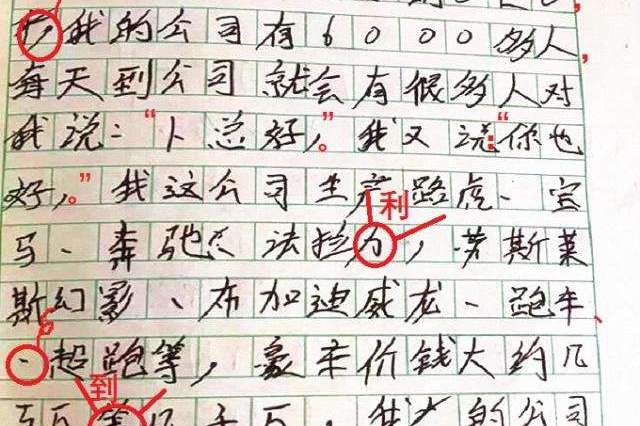 我的公司有6000多人，
每天到公司就会有很多人对
我说："卜总好，"我又说："你也
好，"我这公司生产路虎、宝
利
马、奔驰、法拉力，劳斯莱
斯幻影、布加迪威龙、跑车、
、超跑等，豪车价钱大约几
到
百万等几千万，我的公司